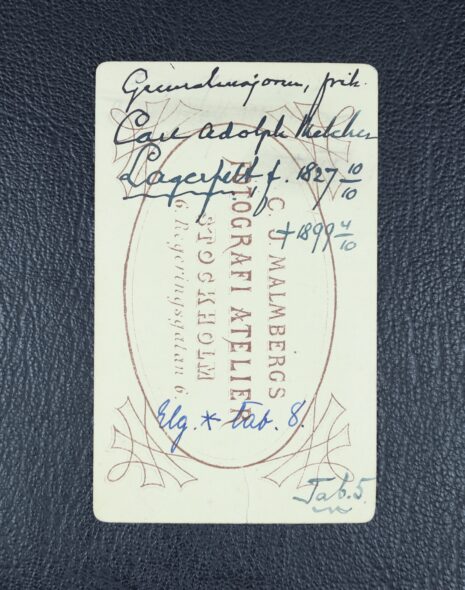 Generalmajoren, frih.
Carl Adolph Melcher
Lagerfelt f. 1827 10/10
† 1899 4/10
C. J. MALMBERGS
FOTOGRAFI ATELIER
STOCKHOLM
6. Regeringsgatan 6.
Elg. * tab. 8.
Tab. 5.